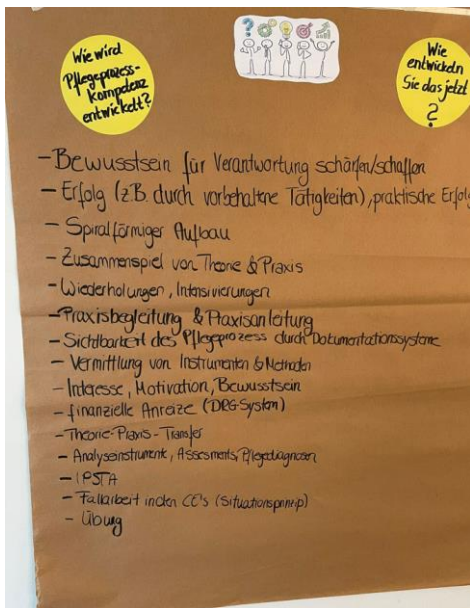 Wie wird
Pflegeprozess-
kompetenz
entwickelt?
?
Wie
entwickeln
Sie das jetzt
?
- Bewusstsein für Verantwortung schärfen/schaffen
- Erfolg (z.B. durch vorbehaltene Tätigkeiten), praktische Erfolg
- Spiralförmiger Aufbau
- Zusammenspiel von Theorie & Praxis
- Wiederholungen, Intensivierungen
- Praxisbegleitung & Praxisanleitung
- Sichtbarkeit des Pflegeprozess durch Dokumentationssysteme
- Vermittlung von Instrumenten & Methoden
- Interesse, Motivation, Bewusstsein
- finanzielle Anreize (DRG-System)
- Theorie-Praxis-Transfer
- Analyseinstrumente, Assesments, Pflegediagnosen
- IPSTA
- Fallarbeit in den CE's (Situationsprinzip)
- Übung